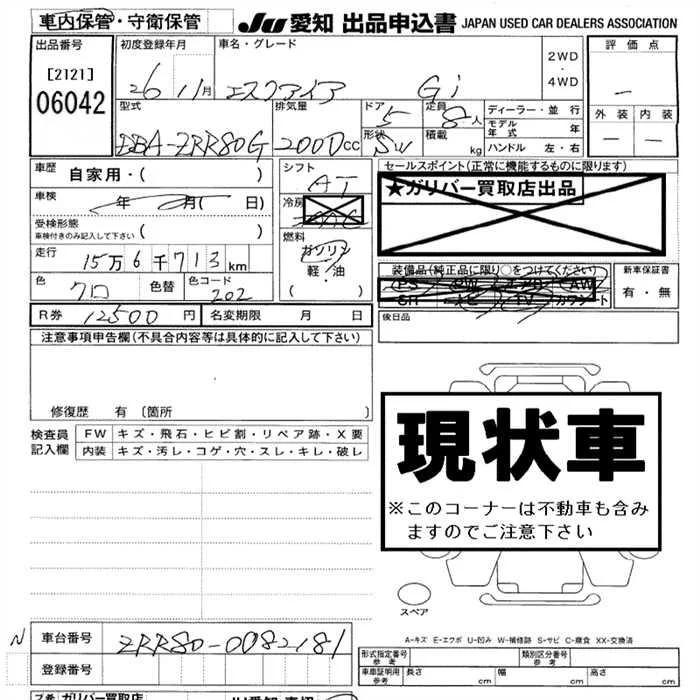 車内保管・守衛保管 JU 愛知 出品申込書 JAPAN USED CAR DEALERS ASSOCIATION
出品番号 初度登録年月 車名・グレード 2WD ・ 4WD 評価点
[2121] 06042 26 11月 エスクァイア Gi －
型式 排気量 ドア 5 定員 8人 ディーラー・並行 外装 内装
DBA-ZRR80G 2000cc 形状 SW 積載 kg モデル年式 年 － －
ハンドル 左・右
車歴 自家用・( ) シフト AT セールスポイント(正常に機能するものに限ります)
車検 年 月( 日) 冷房 ★ガリバー買取店出品
受検形態 車検付きのみ記入して下さい ( )
走行 15万6千713km 燃料 ガソリン 軽・油 ( )
色 クロ 色替 色コード 202 装備品(純正品に限り○をつけてください) 新車保証書
PS PW エアB AW 有・無
SR ナビ TV カワシート
R券 12500円 名変期限 月 日 後日品
注意事項申告欄(不具合内容等は具体的に記入して下さい)
修復歴 有 〔箇所 〕
現状車
※このコーナーは不動車も含み
ますのでご注意下さい
検査員記入欄 FW キズ・飛石・ヒビ割・リペア跡・X要
内装 キズ・汚レ・コゲ・穴・スレ・キレ・破レ
スペア
N 車台番号 ZRR80-0082181 A-キズ E-エクボ U-凹み W-補修跡 S-サビ C-腐食 XX-交換済
登録番号 形式指定番号 参考 類別区分番号 参考
車庫証明用 参考 長さ cm 幅 cm 高さ cm
ガリバー買取店 JU愛知